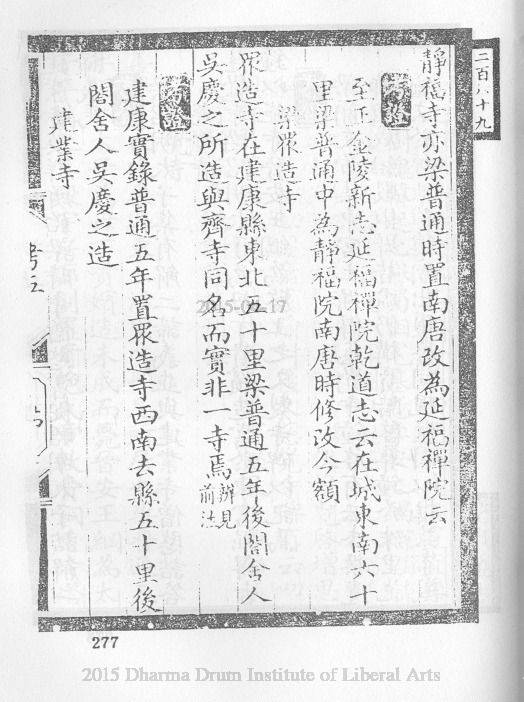 二百八十九
靜福寺亦梁普通時置南唐改為延福禪院云
考證
至正金陵新志延福禪院乾道志云在城東南六十
里梁普通中為靜福院南唐時修改今額
梁眾造寺
眾造寺在建康縣東北五十里梁普通五年後閤舍人
吳慶之所造與齊寺同名而實非一寺焉辨見前注
考證
建康實錄普通五年置眾造寺西南去縣五十里後
閤舍人吳慶之造
建業寺
2015-03-17
277
2015 Dharma Drum Institute of Liberal Arts